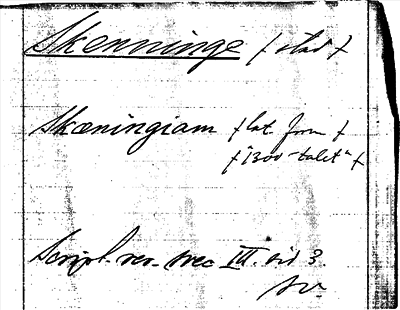 Skenninge /: stad :/
Skæningiam /: lat. form :/
/: "1300-talet" :/
Script. rer. svec. III. sid 3.